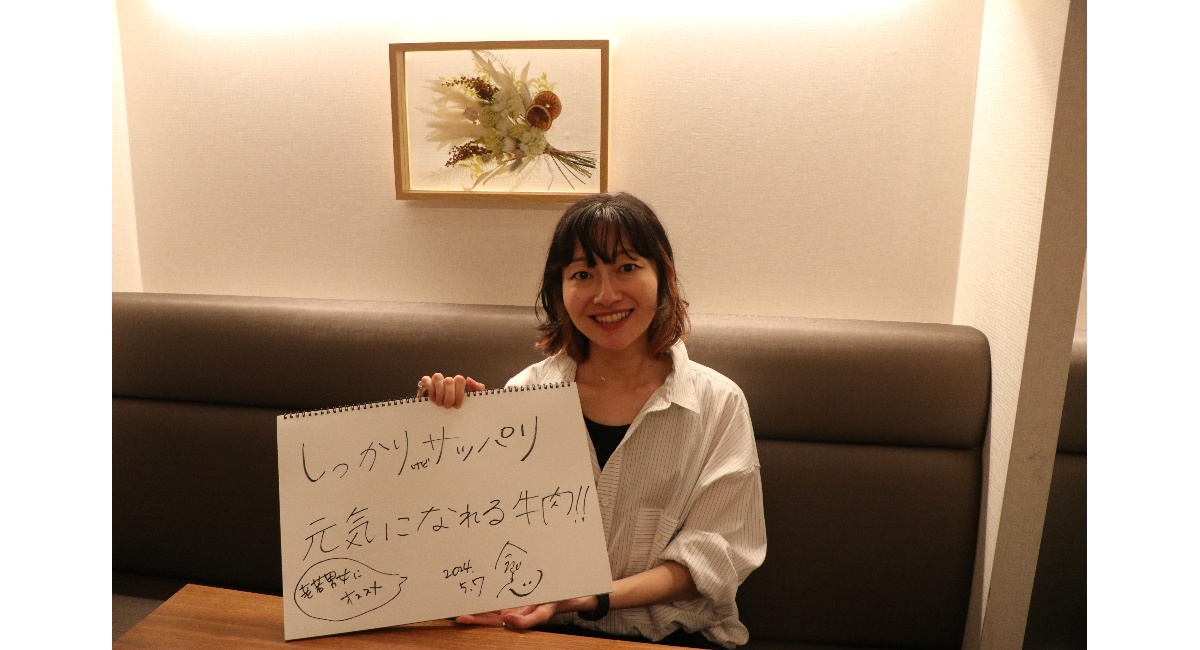 しっかりけどサッパリ
元気になれる牛肉!!
老若男女に
オススメ
2024.
5.7